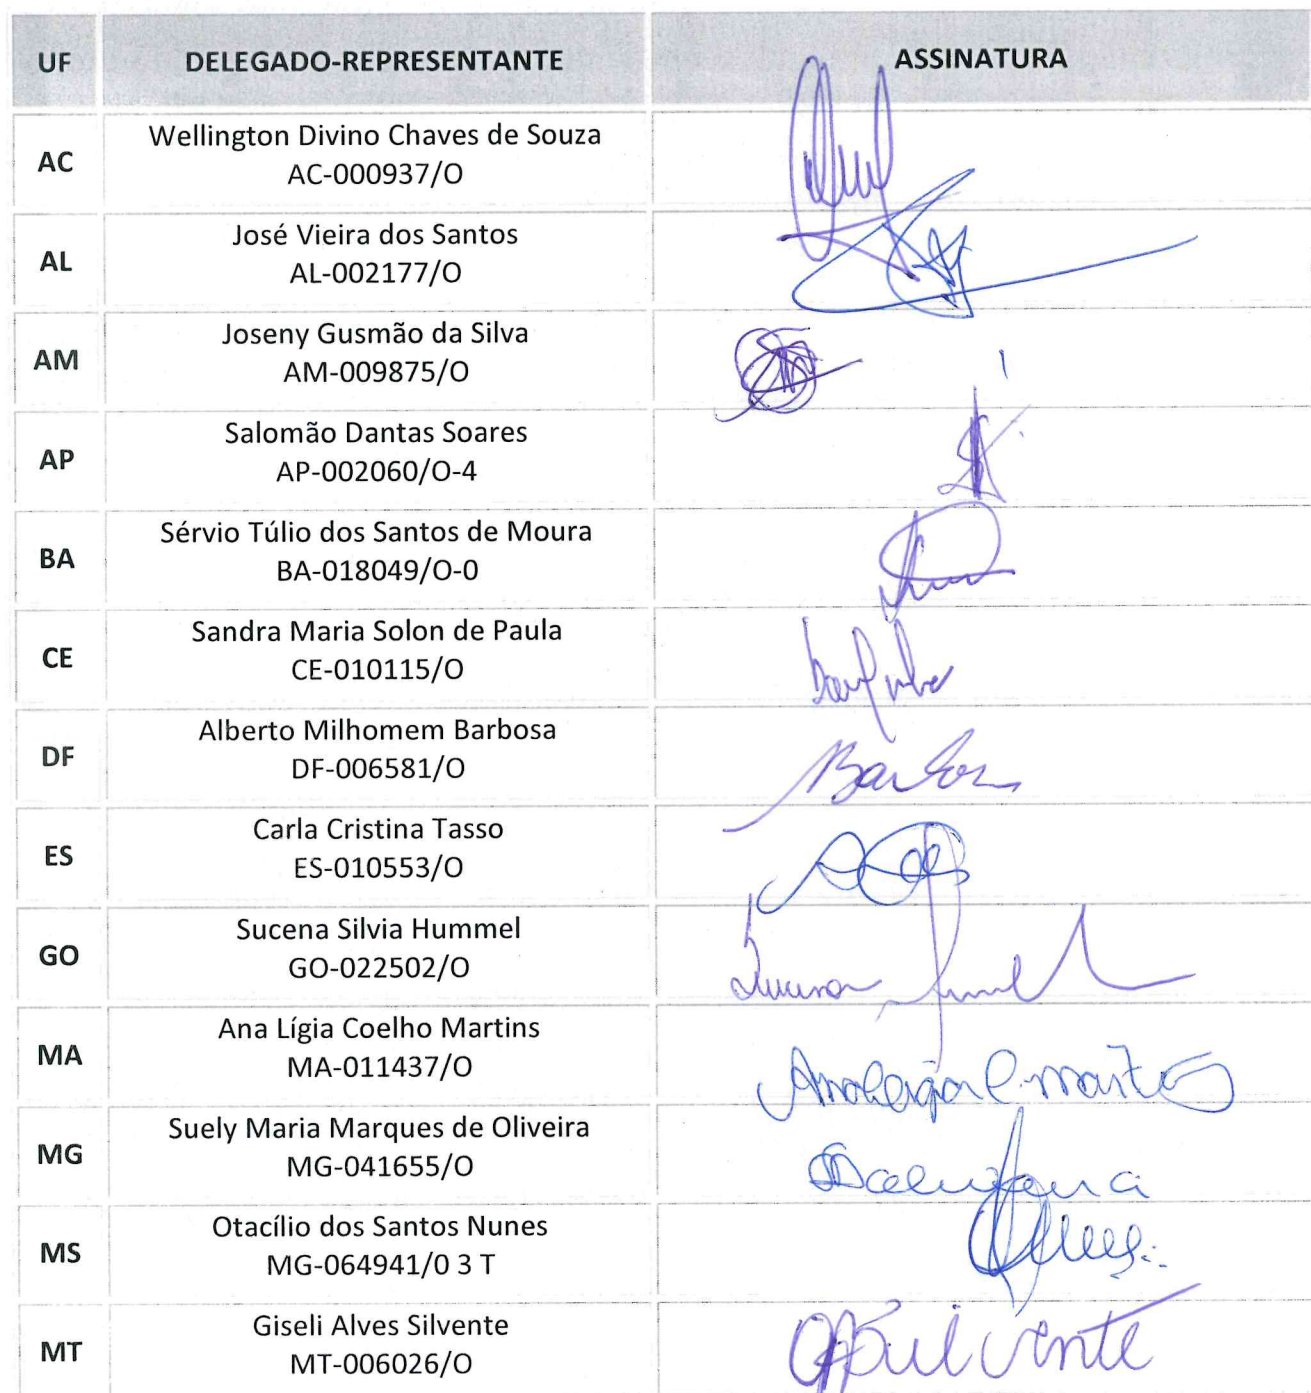 UF DELEGADO-REPRESENTANTE ASSINATURA
AC Wellington Divino Chaves de Souza
AC-000937/O
AL José Vieira dos Santos
AL-002177/O
AM Joseny Gusmão da Silva
AM-009875/O
AP Salomão Dantas Soares
AP-002060/O-4
BA Sérvio Túlio dos Santos de Moura
BA-018049/O-0
CE Sandra Maria Solon de Paula
CE-010115/O
DF Alberto Milhomem Barbosa
DF-006581/O
ES Carla Cristina Tasso
ES-010553/O
GO Sucena Silvia Hummel
GO-022502/O
MA Ana Lígia Coelho Martins
MA-011437/O
MG Suely Maria Marques de Oliveira
MG-041655/O
MS Otacílio dos Santos Nunes
MG-064941/0 3 T
MT Giseli Alves Silvente
MT-006026/O